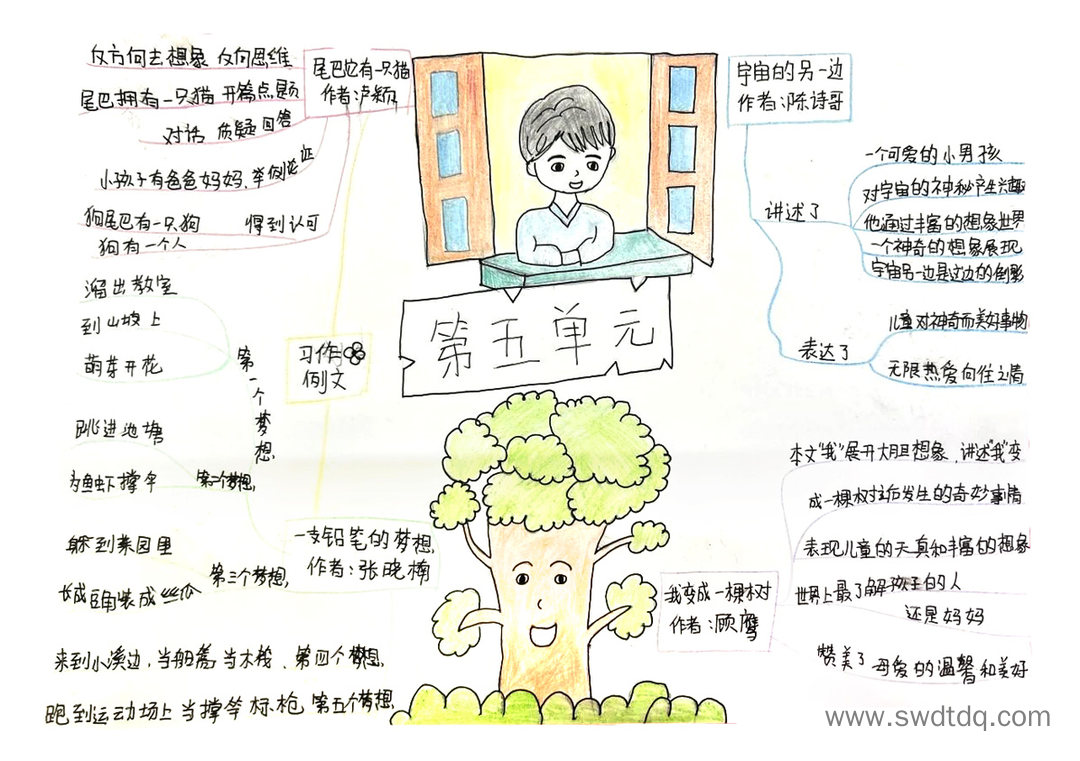 第五单元
尾巴它有一只猫
作者:卢颖
反方向去想象 反向思维
尾巴拥有一只猫 开篇点题
对话 质疑回答
小孩子有爸爸妈妈,举例论证
狗尾巴有一只狗 得到认可
狗有一个人
习作
例文
一支铅笔的梦想
作者:张晓楠
第一个梦想
溜出教室
到山坡上
萌芽开花
第二个梦想
跳进池塘
鱼虾撑伞
第三个梦想
躲到菜园里
长成豆角装成丝瓜
来到小溪边,当船篙 当木筏、第四个梦想
跑到运动场上 当撑竿 标枪 第五个梦想
宇宙的另一边
作者:陈诗哥
讲述了
一个可爱的小男孩
对宇宙的神秘产生兴趣
他通过丰富的想象世界
一个神奇的想象展现
宇宙另一边是这边的倒影
表达了
儿童对神奇而美好事物
无限热爱向往之情
我变成一棵树
作者:顾鹰
本文“我”展开大胆想象,讲述“我”变
成一棵树之后发生的奇妙事情
表现儿童的天真和丰富的想象
世界上最了解孩子的人
还是妈妈
赞美了 母爱的温馨和美好
www.swdtdq.com